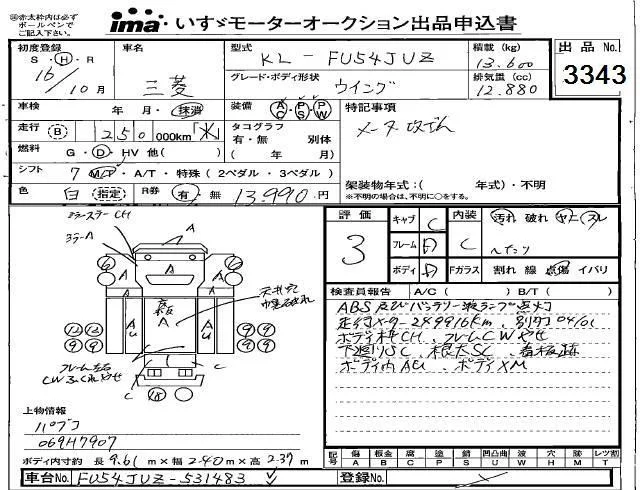 ※赤太枠内は必ず
ボールペンで
ご記入下さい。
ima・いすゞモーターオークション出品申込書
初度登録
S・H・R
16/10月
車名
三菱
型式
KL-FU54JUZ
積載(kg)
13.600
グレード・ボディ形状
ウイング
排気量(cc)
12.880
出品No.
3343
車検
年 月・抹消
装備
AC・PS・PW
特記事項
メータ改ざん
走行 B 1250 000km
タコグラフ
有・無 別体
( 年 月)
燃料 G・D・HV 他( )
シフト 7 M/T・A/T・特殊(2ペダル・3ペダル)
架装物年式:( 年式)・不明
※不明の場合は、不明に○をする。
色 白 指定
R券 有・無 13.990円
評価
3
キャブ C
フレーム
ボディ
内装 C
Fガラス
汚れ 破れ ヤニ・スレ
へたり
割れ 線 点傷 イバリ
検査員報告 A/C( ) B/T( )
ABS及びバッテリー液ランプ点灯
走行メーター249916km、
ボディ枠CH、フレームCWヤセ
下廻りSC、根太SC、看板跡
ボディ内AU、ボディXM
ミラーステーCH
ミラーA
A
A
A
A
A
床板
A
天井穴
巾木破れ
AU
AU
フレーム左右
C
C
上物情報
パブコ
069H7907
ボディ内寸約 長9.61m×幅2.40m×高2.37m
記号
傷 板金 腐 塗 錆 凹凸曲 波 穴 跡 レツ割
A B C P S U W H M T
車台No. FU54JUZ-531483
登録No.